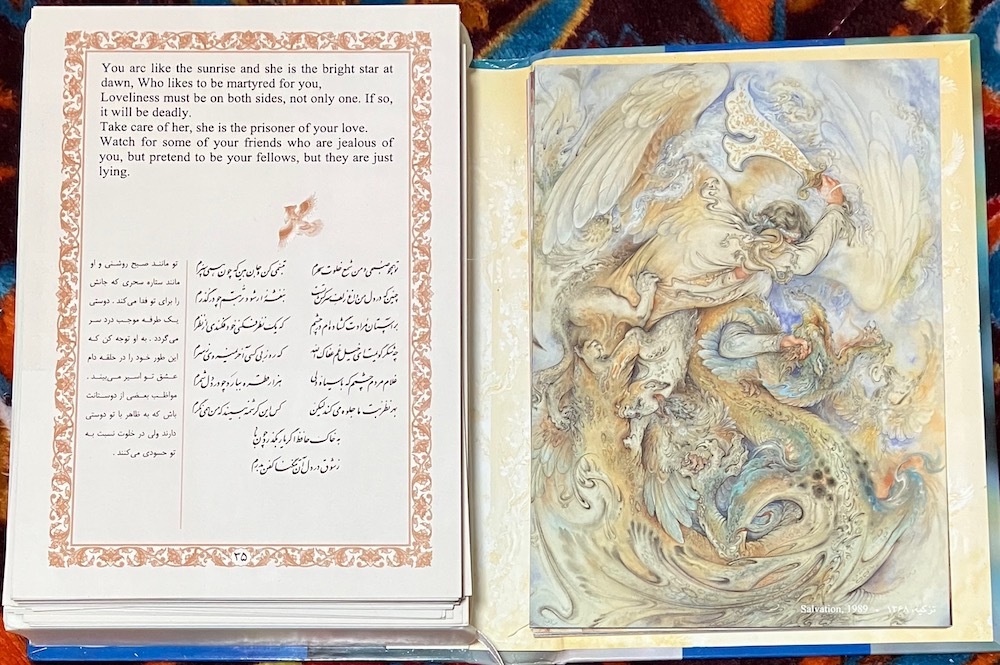 You are like the sunrise and she is the bright star at
dawn, Who likes to be martyred for you,
Loveliness must be on both sides, not only one. If so,
it will be deadly.
Take care of her, she is the prisoner of your love.
Watch for some of your friends who are jealous of
you, but pretend to be your fellows, but they are just
lying.
تو همچو صبحی و من شمع خلوت سحرم تبسمی کن و جان بین که چون همی سپرم
چنین که در دل من داغ زلف سرکش تست بنفشه زار شود تربتم چو درگذرم
بر آستان مرادت گشاده ام در چشم که یک نظر فکنی خود فکندی از نظرم
چه شکر گویمت ای خیل غم عفاک الله که روز بی کسی آخر نمیروی ز سرم
غلام مردم چشمم که با سیاه دلی هزار قطره ببارد چو درد دل شمرم
بهر نظر بت ما جلوه می کند لیکن کس این کرشمه نبیند که من همی نگرم
به خاک حافظ اگر یار بگذرد چون باد
ز شوق در دل آن تنگنا کفن بدرم
تو مانند صبح روشنی و او
مانند ستاره سحری که جانش
را برای تو فدا می‌کند . دوستی
یک طرفه موجب درد سر
می‌گردد . به او توجه کن که
این طور خود را در حلقه دام
عشق تو اسیر می‌بیند .
مواظب بعضی از دوستانت
باش که به ظاهر با تو دوستی
دارند ولی در خلوت نسبت به
تو حسودی می‌کنند .
۳۵
Salvation, 1989 - تزکیه، ۱۳۶۸